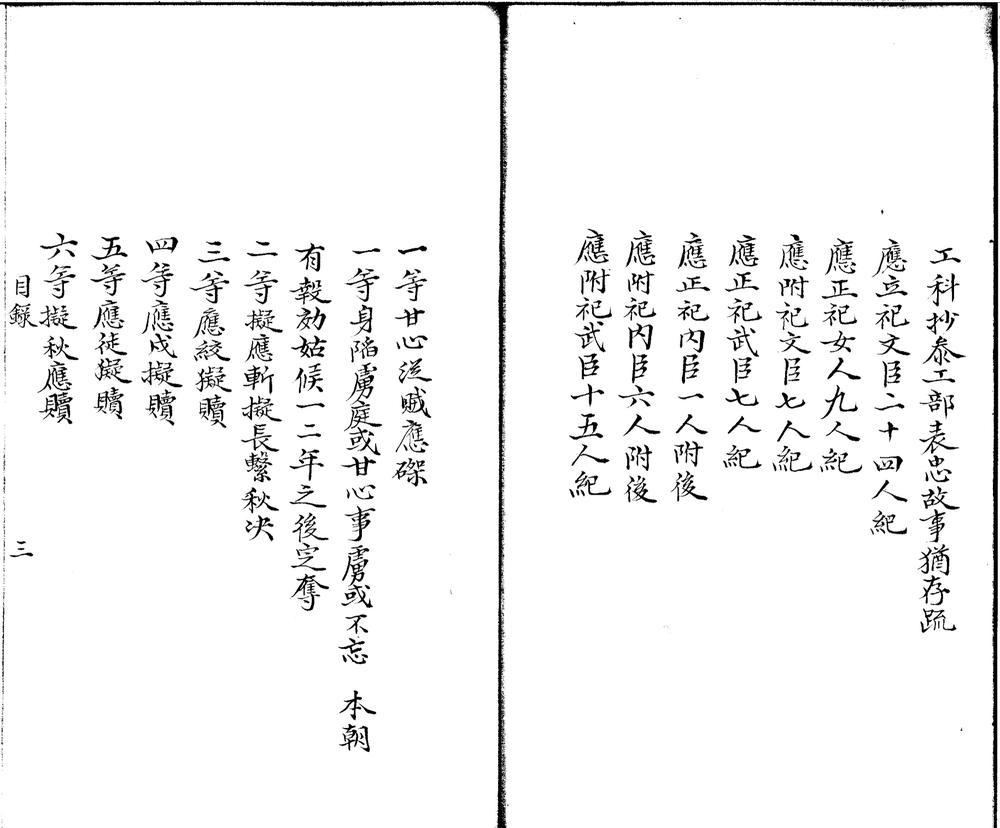 工科抄叅工部表忠故事猶存疏
應立祀文臣二十四人紀
應正祀女人九人紀
應附祀文臣七人紀
應正祀武臣七人紀
應正祀内臣一人附後
應附祀内臣六人附後
應附祀武臣十五人紀
一等甘心從賊應磔
一等身陷虜庭或甘心事虜或不忘　本朝
有報効姑候一二年之後定奪
二等擬應斬擬長繫秋决
三等應絞擬贖
四等應戍擬贖
五等應徒擬贖
六等擬秋應贖
目録
三